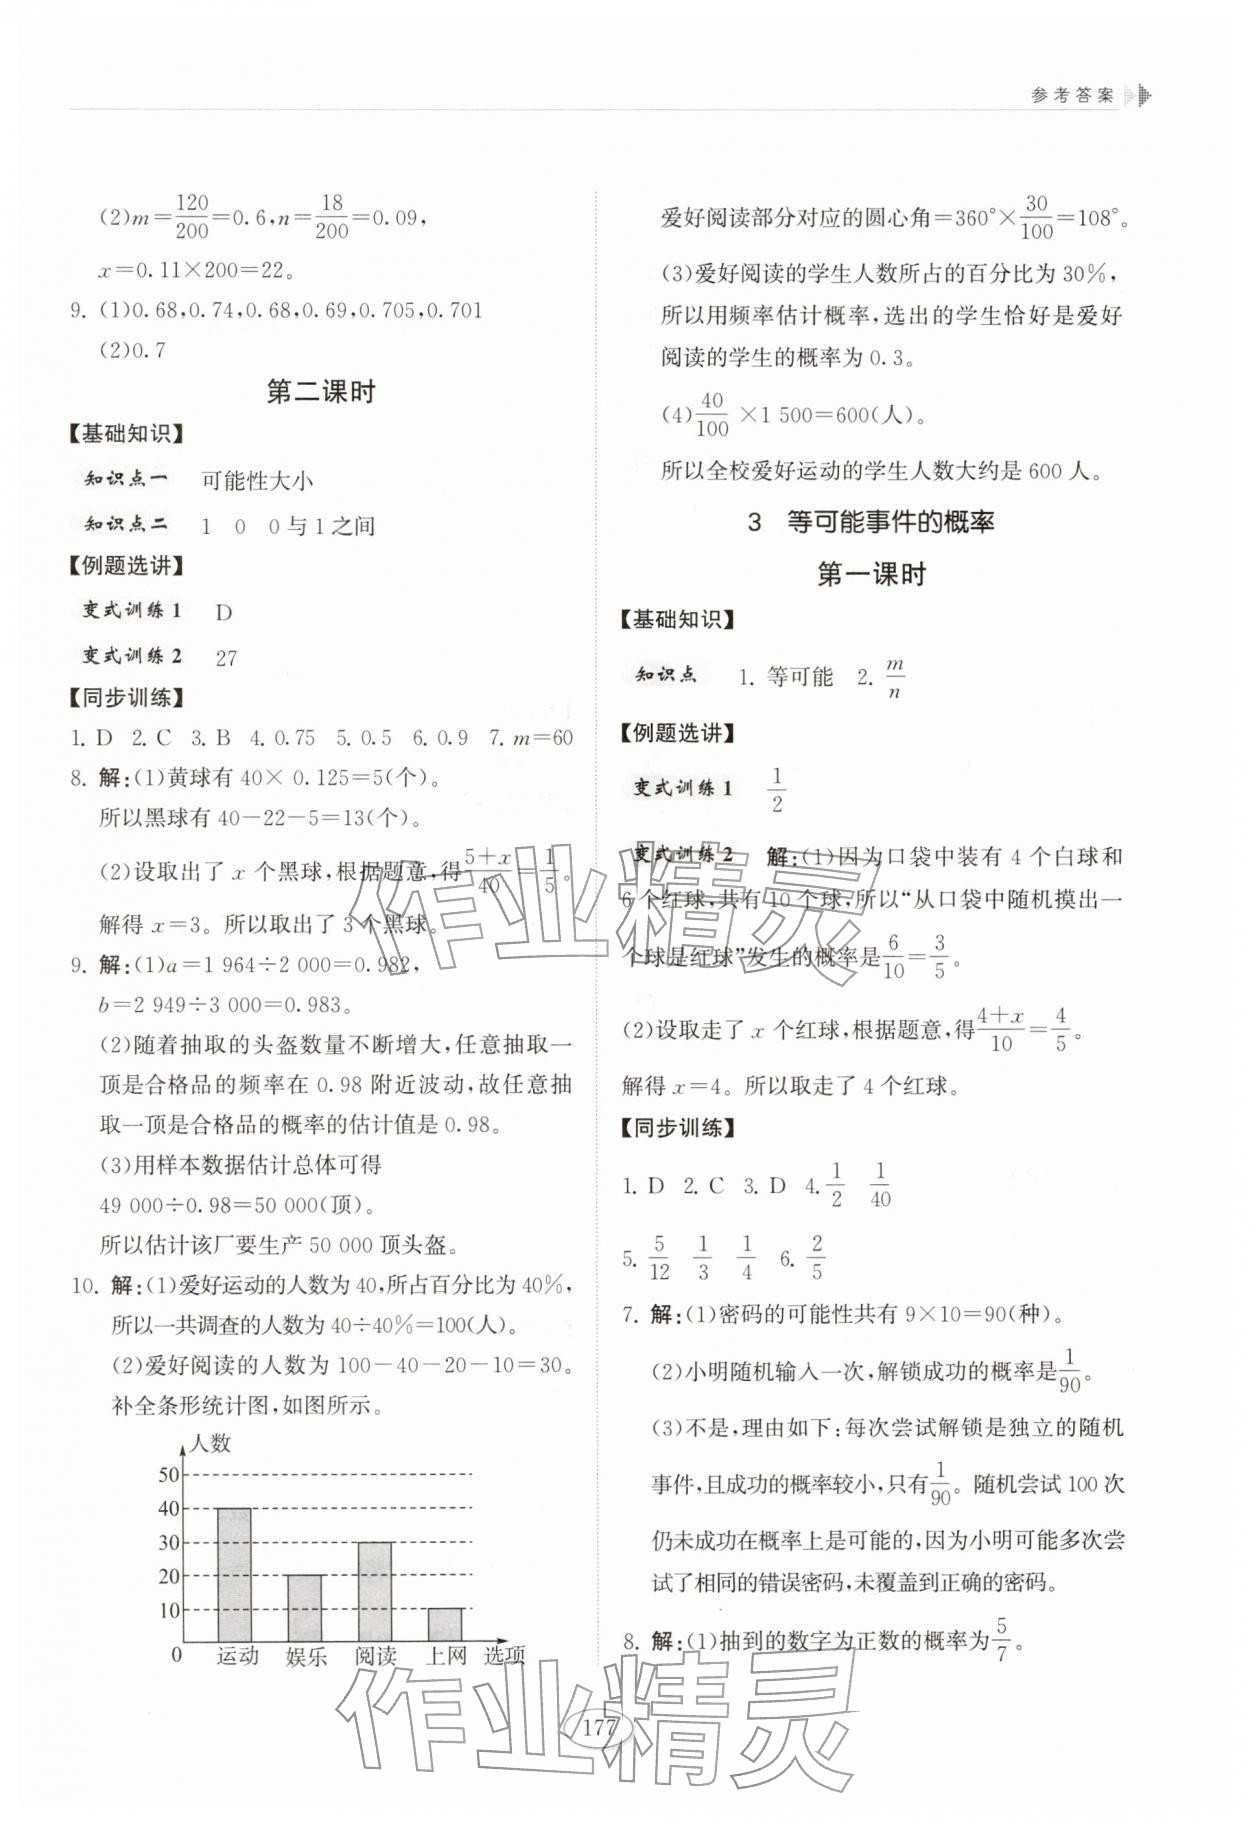 参考答案
(2)m=120/200=0.6,n=18/200=0.09,
x=0.11×200=22。
9. (1)0.68,0.74,0.68,0.69,0.705,0.701
(2)0.7
第二课时
【基础知识】
知识点一 可能性大小
知识点二 1 0 0与1之间
【例题选讲】
变式训练1 D
变式训练2 27
【同步训练】
1. D 2. C 3. B 4. 0.75 5. 0.5 6. 0.9 7. m=60
8. 解:(1)黄球有40×0.125=5(个)。
所以黑球有40-22-5=13(个)。
(2)设取出了x个黑球,根据题意,得(5+x)/40=1/5。
解得x=3。所以取出了3个黑球。
9. 解:(1)a=1 964÷2 000=0.982,
b=2 949÷3 000=0.983。
(2)随着抽取的头盔数量不断增大,任意抽取一
顶是合格品的频率在0.98附近波动,故任意抽
取一顶是合格品的概率的估计值是0.98。
(3)用样本数据估计总体可得
49 000÷0.98=50 000(顶)。
所以估计该厂要生产50 000顶头盔。
10. 解:(1)爱好运动的人数为40,所占百分比为40%,
所以一共调查的人数为40÷40%=100(人)。
(2)爱好阅读的人数为100-40-20-10=30。
补全条形统计图,如图所示。
人数
50
40
30
20
10
0 运动 娱乐 阅读 上网 选项
爱好阅读部分对应的圆心角=360°×30/100=108°。
(3)爱好阅读的学生人数所占的百分比为30%,
所以用频率估计概率,选出的学生恰好是爱好
阅读的学生的概率为0.3。
(4)40/100×1 500=600(人)。
所以全校爱好运动的学生人数大约是600人。
3 等可能事件的概率
第一课时
【基础知识】
知识点 1. 等可能 2. m/n
【例题选讲】
变式训练1 1/2
变式训练2 解:(1)因为口袋中装有4个白球和
6个红球,共有10个球,所以“从口袋中随机摸出一
个球是红球”发生的概率是6/10=3/5。
(2)设取走了x个红球,根据题意,得(4+x)/10=4/5。
解得x=4。所以取走了4个红球。
【同步训练】
1. D 2. C 3. D 4. 1/2 1/40
5. 5/12 1/3 1/4 6. 2/5
7. 解:(1)密码的可能性共有9×10=90(种)。
(2)小明随机输入一次,解锁成功的概率是1/90。
(3)不是,理由如下:每次尝试解锁是独立的随机
事件,且成功的概率较小,只有1/90。随机尝试100次
仍未成功在概率上是可能的,因为小明可能多次尝
试了相同的错误密码,未覆盖到正确的密码。
8. 解:(1)抽到的数字为正数的概率为5/7。
177
作业精灵
作业精灵